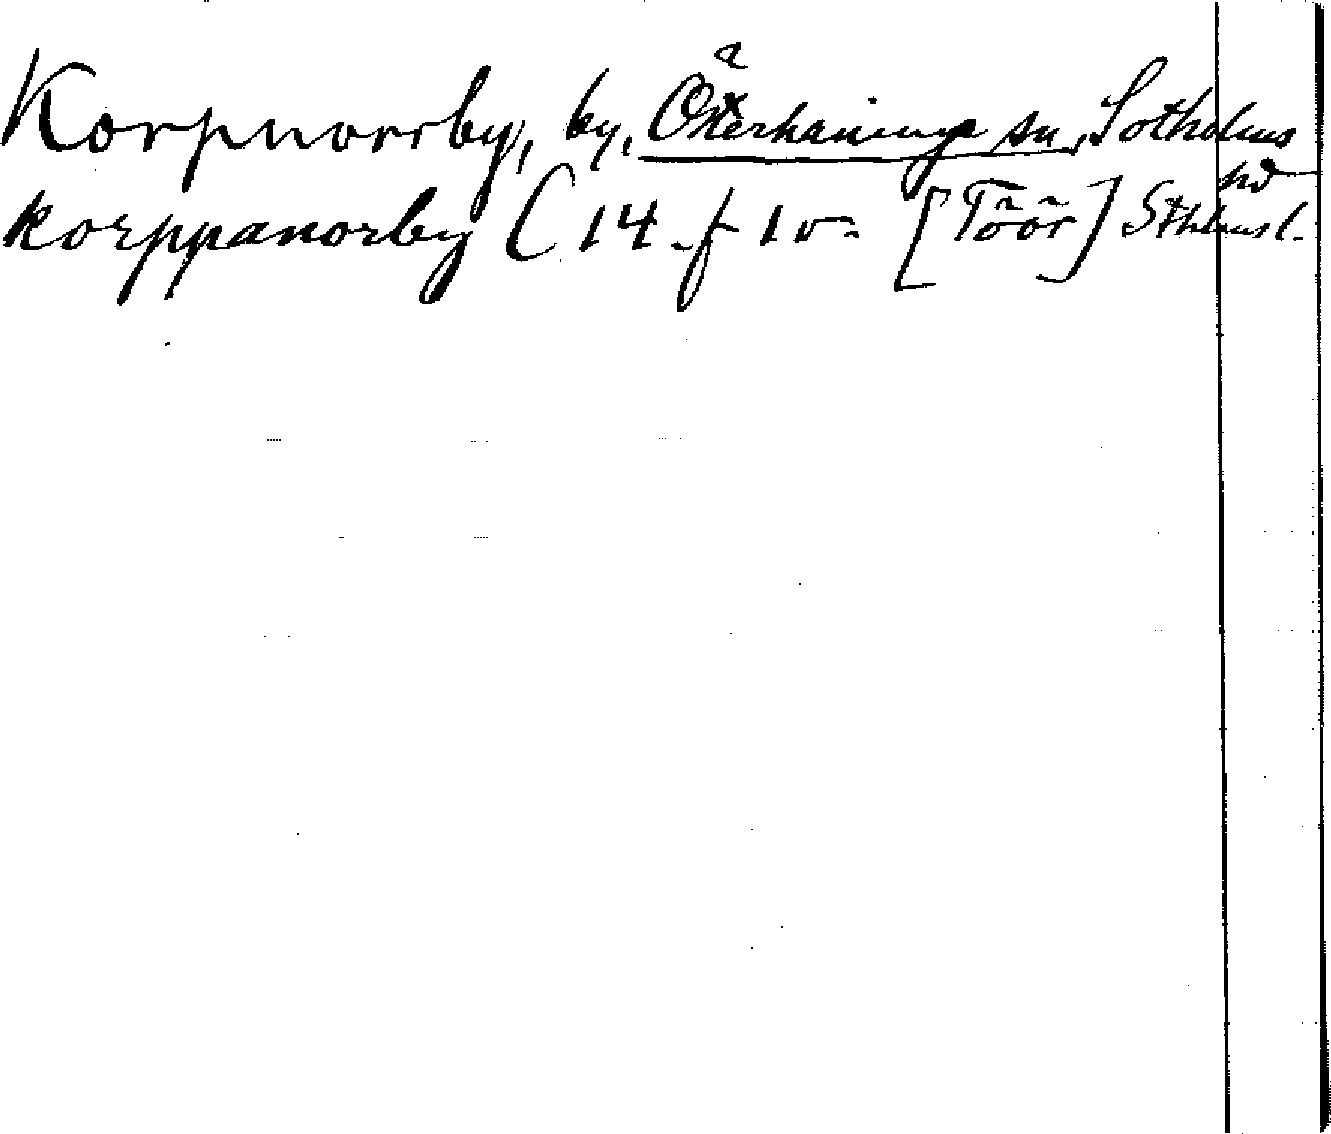 Korpnorrby, by, Österhaninge sn, Sotholms hd
korppanorby C 14 f 1 v. [Töör] Sthlmsl.